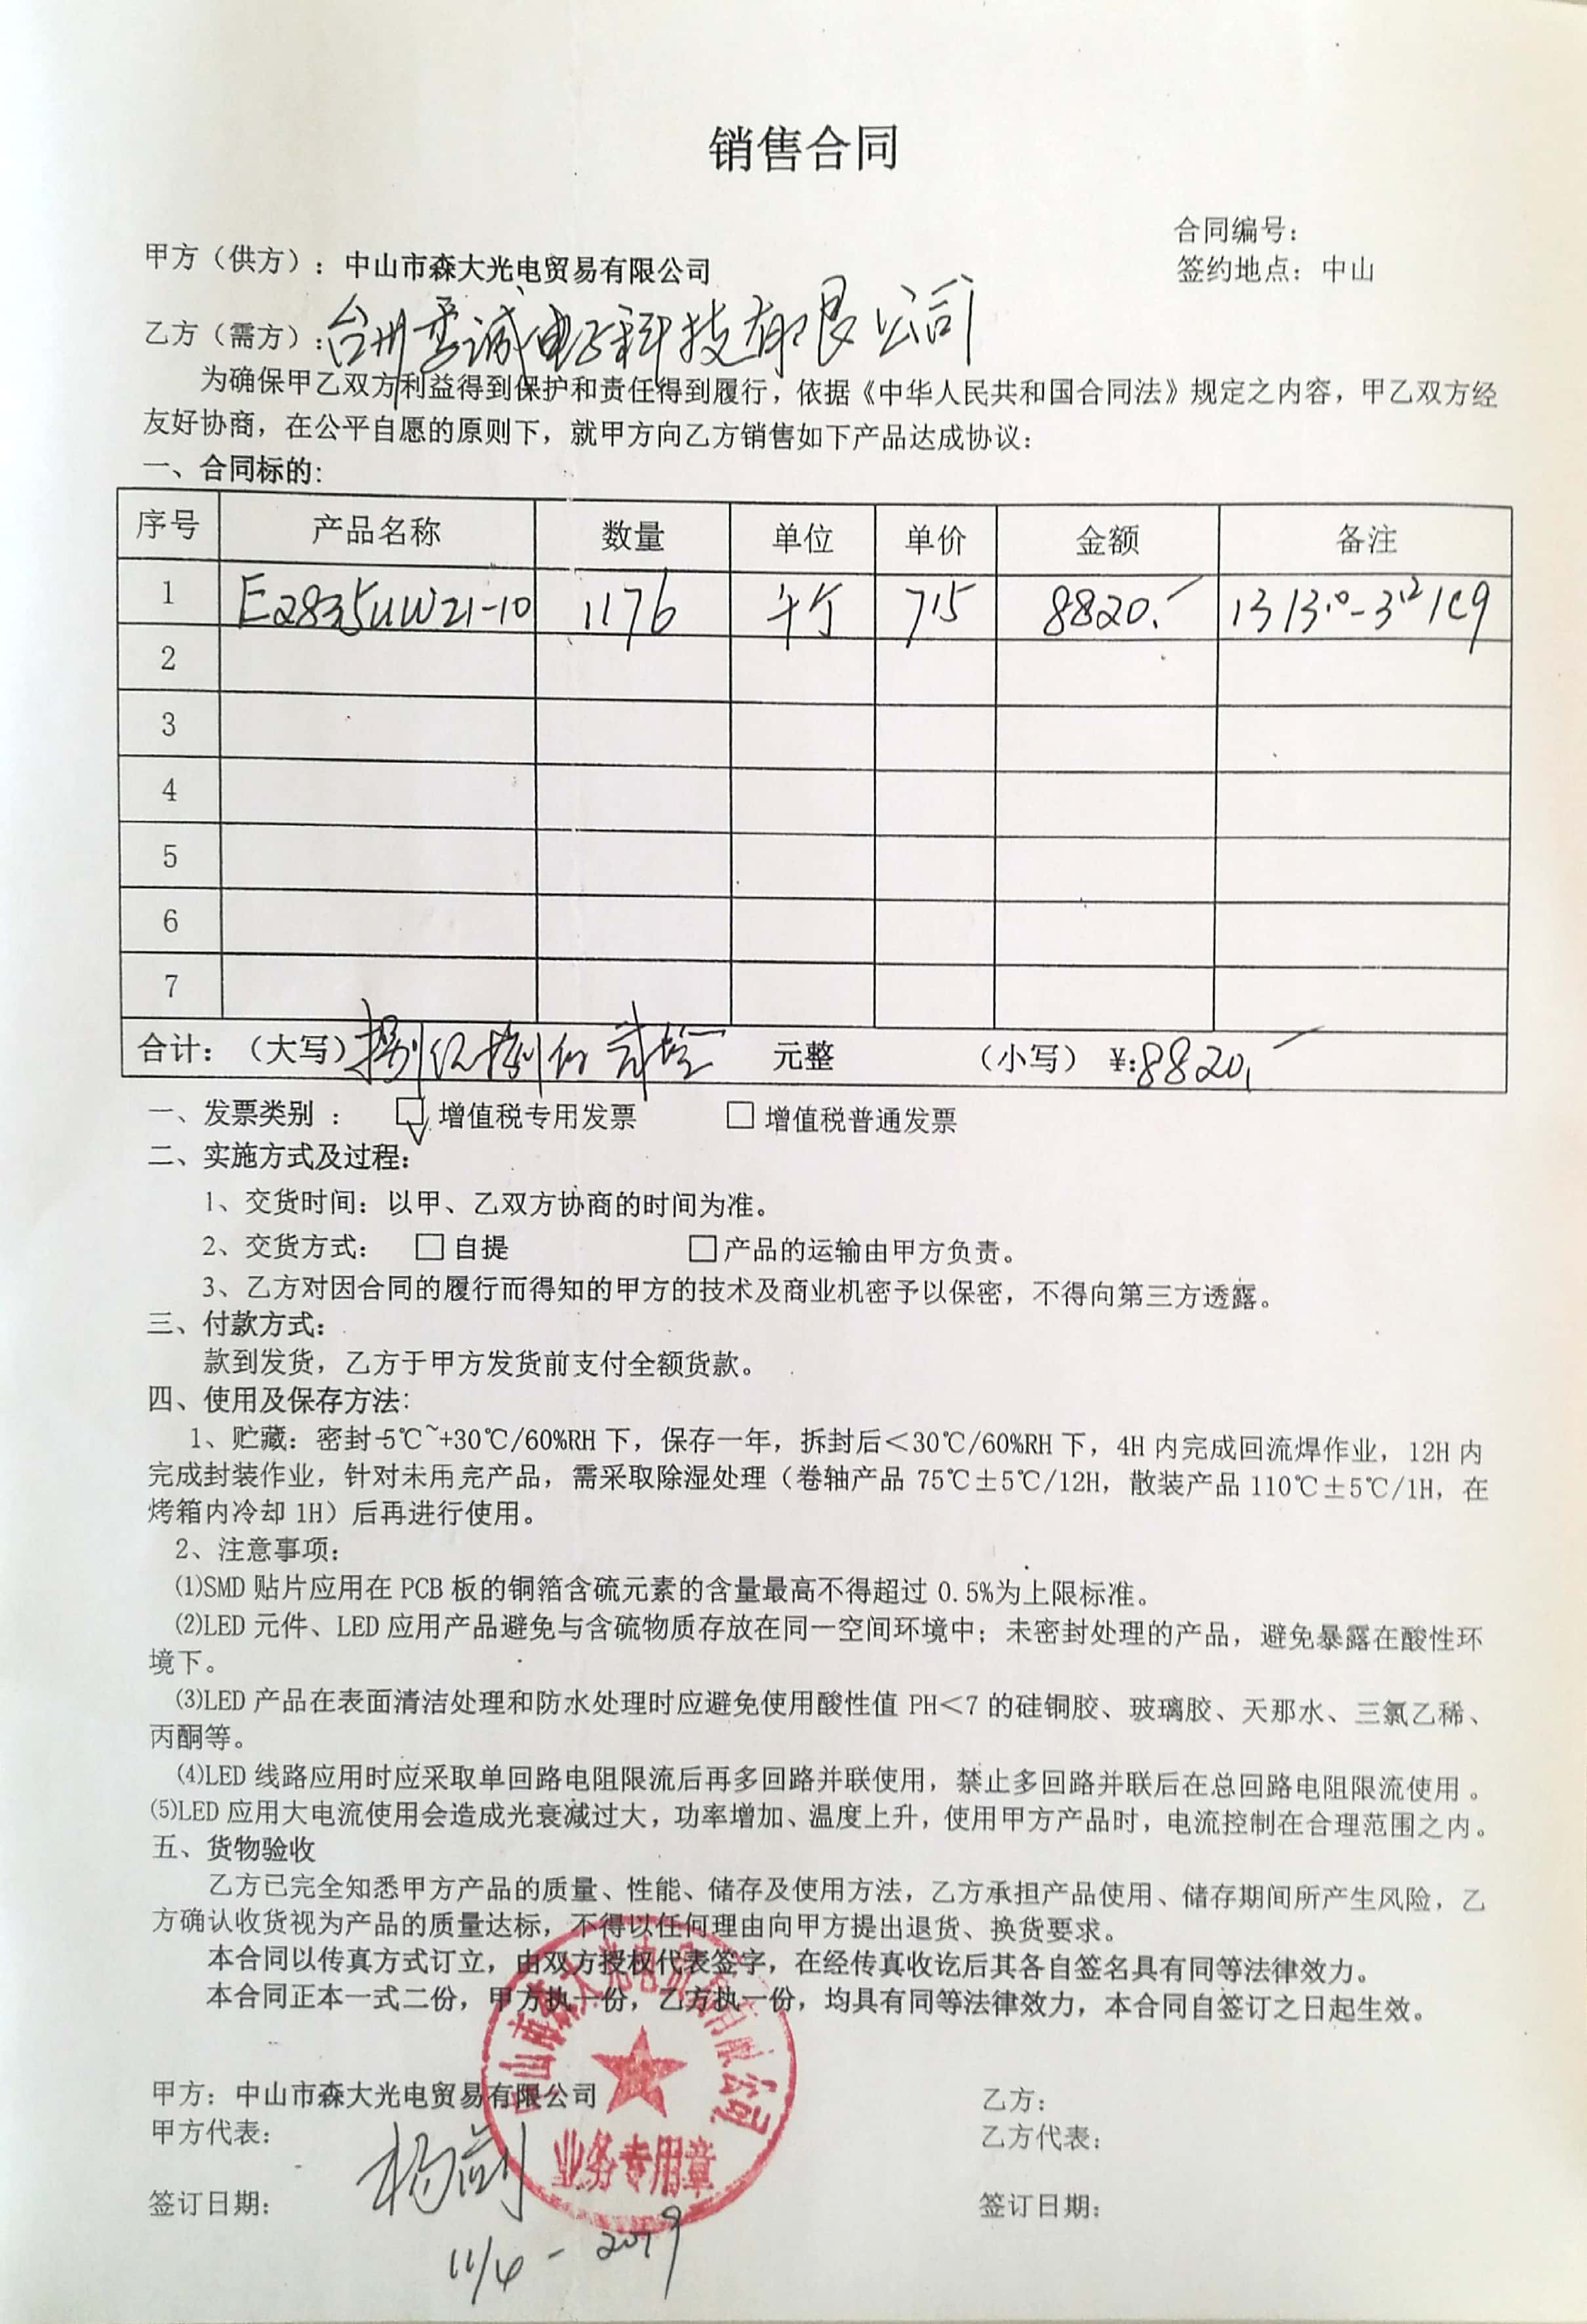 销售合同
合同编号：
甲方（供方）：中山市森大光电贸易有限公司
签约地点：中山
乙方（需方）：台州 诚电子科技有限公司
为确保甲乙双方利益得到保护和责任得到履行，依据《中华人民共和国合同法》规定之内容，甲乙双方经
友好协商，在公平自愿的原则下，就甲方向乙方销售如下产品达成协议：
一、合同标的：
序号 产品名称 数量 单位 单价 金额 备注
1 E2835UW21-10 1176 千个 715 8820.
2
3
4
5
6
7
合计：（大写）捌仟捌佰贰拾 元整 （小写）¥:8820.
一、发票类别： □ 增值税专用发票 □ 增值税普通发票
二、实施方式及过程：
1、交货时间：以甲、乙双方协商的时间为准。
2、交货方式： □ 自提 □产品的运输由甲方负责。
3、乙方对因合同的履行而得知的甲方的技术及商业机密予以保密，不得向第三方透露。
三、付款方式：
款到发货，乙方于甲方发货前支付全额货款。
四、使用及保存方法：
1、贮藏：密封-5℃~+30℃/60%RH 下，保存一年，拆封后＜30℃/60%RH 下，4H 内完成回流焊作业，12H 内
完成封装作业，针对未用完产品，需采取除湿处理（卷轴产品 75℃±5℃/12H，散装产品 110℃±5℃/1H，在
烤箱内冷却 1H）后再进行使用。
2、注意事项：
⑴SMD 贴片应用在 PCB 板的铜箔含硫元素的含量最高不得超过 0.5%为上限标准。
⑵LED 元件、LED 应用产品避免与含硫物质存放在同一空间环境中；未密封处理的产品，避免暴露在酸性环
境下。
⑶LED 产品在表面清洁处理和防水处理时应避免使用酸性值 PH＜7 的硅铜胶、玻璃胶、天那水、三氯乙稀、
丙酮等。
⑷LED 线路应用时应采取单回路电阻限流后再多回路并联使用，禁止多回路并联后在总回路电阻限流使用。
⑸LED 应用大电流使用会造成光衰减过大，功率增加、温度上升，使用甲方产品时，电流控制在合理范围之内。
五、货物验收
乙方已完全知悉甲方产品的质量、性能、储存及使用方法，乙方承担产品使用、储存期间所产生风险，乙
方确认收货视为产品的质量达标，不得以任何理由向甲方提出退货、换货要求。
本合同以传真方式订立，由双方授权代表签字，在经传真收讫后其各自签名具有同等法律效力。
本合同正本一式二份，甲方执一份，乙方执一份，均具有同等法律效力，本合同自签订之日起生效。
中山市森大光电贸易有限公司
业务专用章
甲方：中山市森大光电贸易有限公司
乙方：
甲方代表：
乙方代表：
签订日期：
签订日期：
11/4-2019